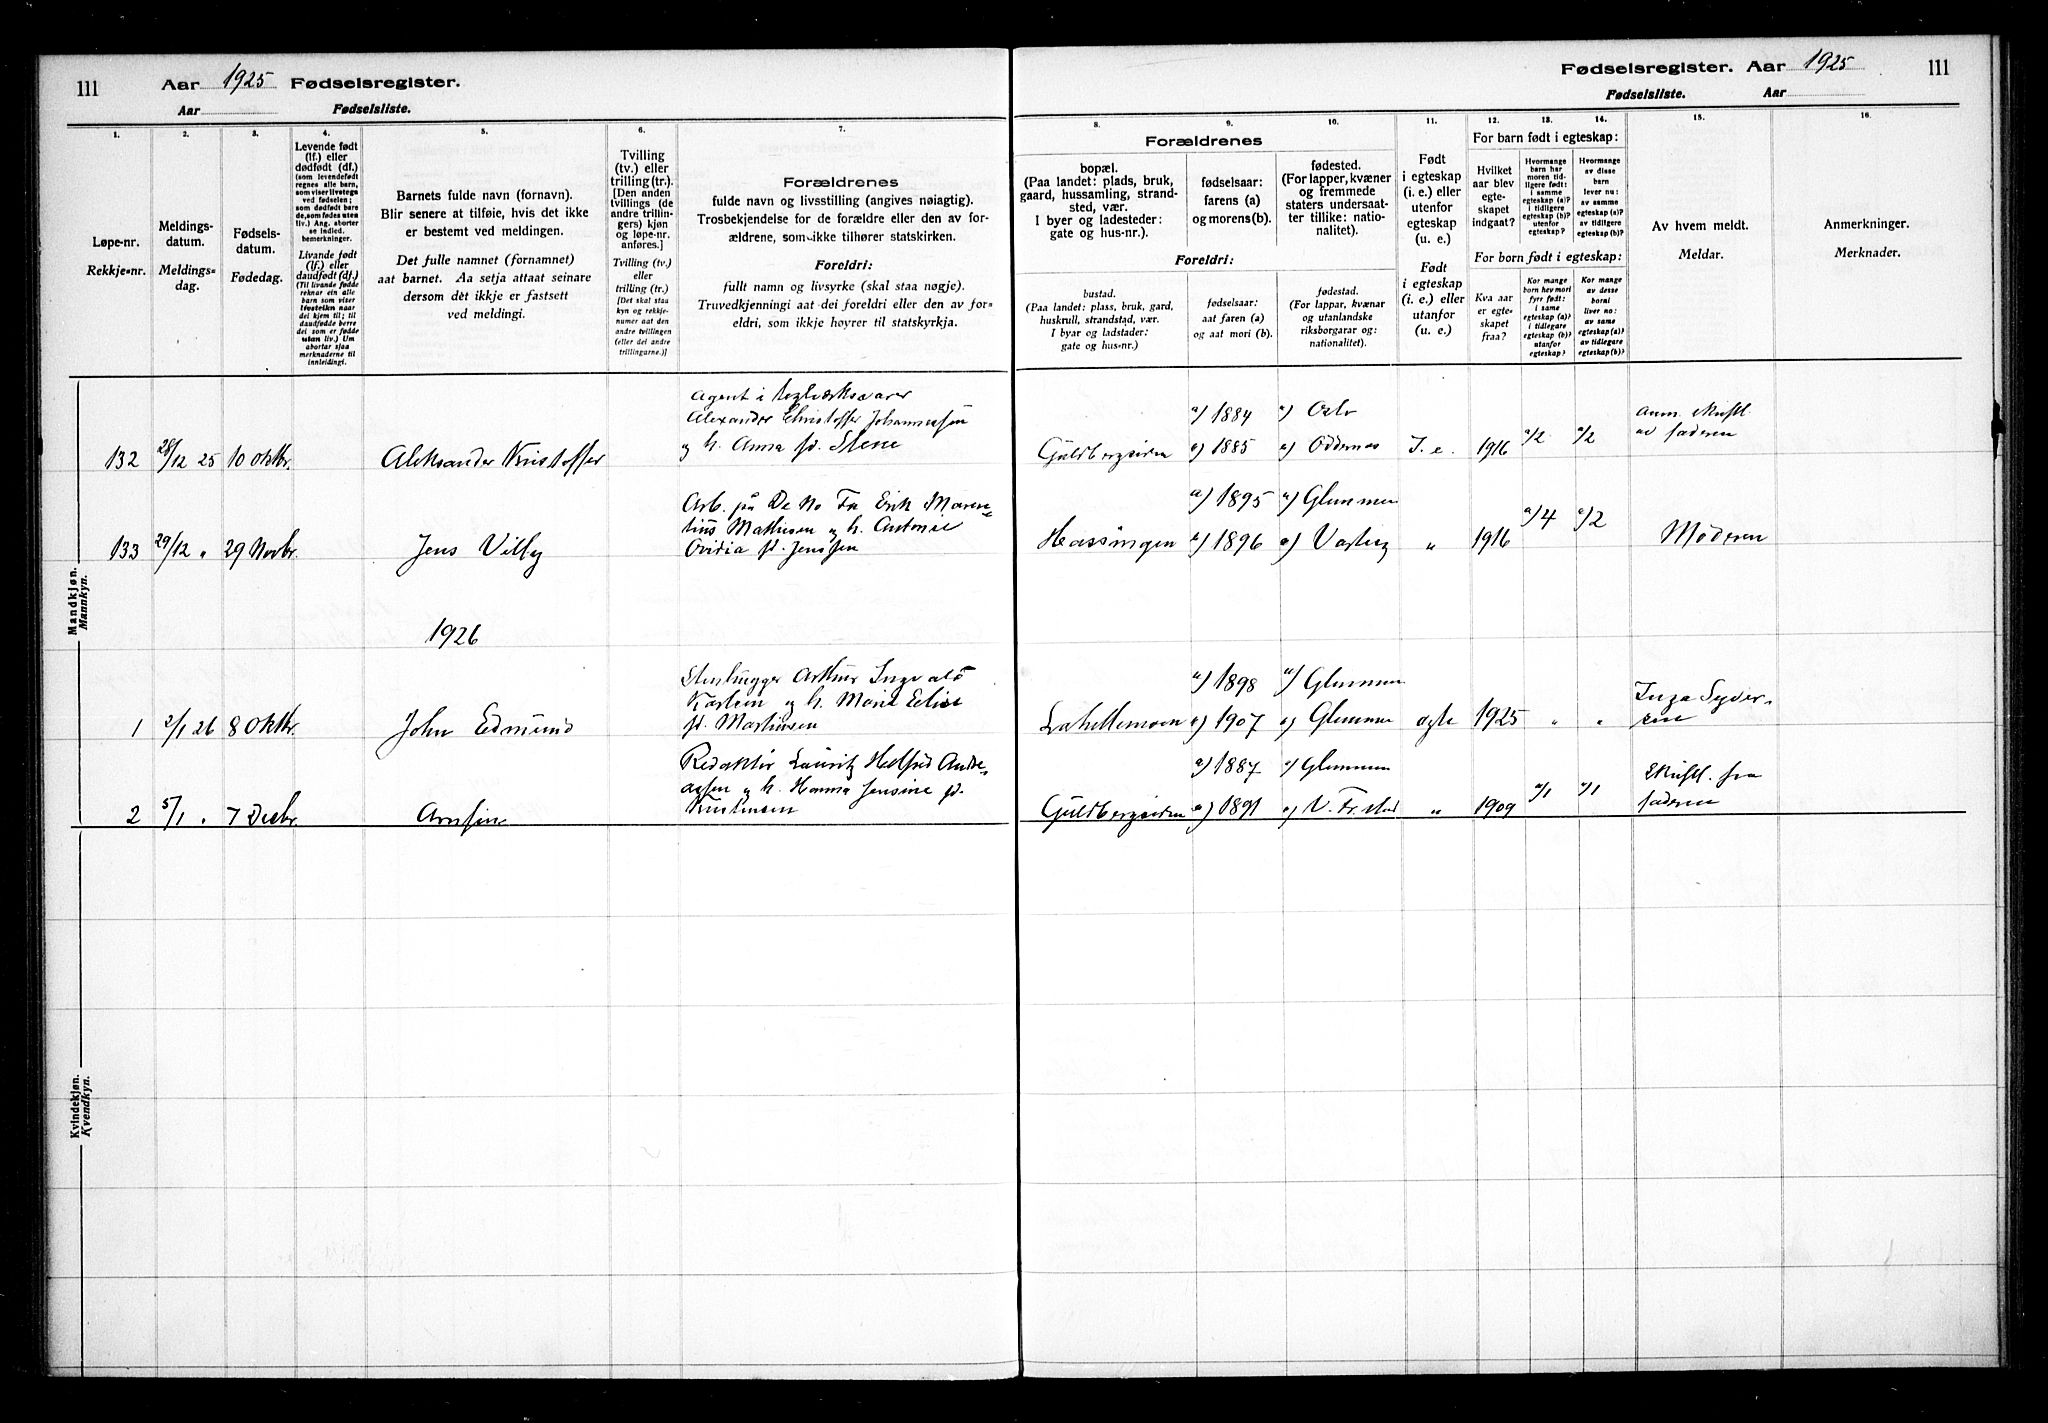 111 Aar 1925 Fødselsregister.
Aar Fødselsliste.
Fødselsregister. Aar 1925 111
Fødselsliste. Aar
1.
Løpe-nr.
Rekkje-nr.
2.
Meldings-
datum.
Meldings-
dag.
3.
Fødsels-
datum.
Fødedag.
4.
Levende født
(lf.) eller
dødfødt (df.)
(som levendefødt
regnes alle barn,
som viser livstegn
ved fødselen;
som dødfødt bare
de, som fødes uten
liv.) Ang. aborter
se indled.
bemerkninger.
Livande født
(lf.) eller
daudfødt (df.)
(Til livande fødde
reknar ein alle
barn som viser
livsteikn naar
dei kjem til; til
daudfødde berre
dei som er fødde
utan liv.) Um
abortar sjaa
merknaderne til
innleidingi.
5.
Barnets fulde navn (fornavn).
Blir senere at tilføie, hvis det ikke
er bestemt ved meldingen.
Det fulle namnet (fornamnet)
aat barnet. Aa setja attaat seinare
dersom dèt ikkje er fastsett
ved meldingi.
6.
Tvilling
(tv.) eller
trilling (tr.).
[Den anden
tvillings (de
andre trillin-
gers) kjøn
og løpe-nr.
anføres.]
Tvilling (tv.)
eller
trilling (tr.)
[Det skal staa
kyn og rekkje-
numer aat den
andre tvillingen
(eller dei andre
trillingarne.)]
7.
Forældrenes
fulde navn og livsstilling (angives nøiagtig).
Trosbekjendelse for de forældre eller den av for-
ældrene, som ikke tilhører statskirken.
Foreldri:
fullt namn og livsyrke (skal staa nøgje).
Truvedkjenningi aat dei foreldri eller den av for-
eldri, som ikkje høyrer til statskyrkja.
Forældrenes
8.
bopæl.
(Paa landet: plads, bruk,
gaard, hussamling, strand-
sted, vær.
I byer og ladesteder:
gate og hus-nr.).
9.
fødselsaar:
farens (a)
og morens (b).
10.
fødested.
(For lapper, kvæner
og fremmede
staters undersaat-
ter tillike: natio-
nalitet).
Foreldri:
bustad.
(Paa landet: plass, bruk, gard,
huskrull, strandstad, vær.
I byar og ladstader:
gate og hus-nr.)
fødselsaar:
aat faren (a)
og aat mori (b).
fødestad.
(For lappar, kvænar
og utanlandske
riksborgarar og:
nationalitet).
11.
Født
i egteskap
(i. e.) eller
utenfor
egteskap
(u. e.)
Født
i egteskap
(i. e.) eller
utanfor
(u. e.)
12. 13. 14.
For barn født i egteskap:
Hvilket
aar blev
egte-
skapet
indgaat?
Hvormange
barn har
moren tid-
ligere født:
i samme
egteskap (a)?
i tidligere
egteskap (b)?
utenfor
egteskap?
Hvormange
av disse
barn
lever nu:
av samme
egteskap (a)?
av tidligere
egteskap (b)?
For born født i egteskap:
Kva aar
er egte-
skapet
fraa?
Kor mange
born hev mori
fyrr født:
i same
egteskap (a)?
i tidlegare
egteskap (b)?
utanfor
egteskap?
Kor mange
av desse
borni
liver no:
av same
egteskap (a)?
av tidlegare
egteskap (b)?
15.
Av hvem meldt.
Meldar.
16.
Anmerkninger.
Merknader.
Mandkjøn.
Mannkyn.
132 28/12 25 10 oktbr. Aleksander Kristoffer
Agent i
Alexander Christoffer Johannessen
og h. Anna fd. Stene
Guldbergsiden a) 1884 a) Oslo
1885 Oddernes I. e. 1916 a/2 a/2
av faderen
133 29/12 " 29 Novbr. Jens Villy
Arb. på De No Fa Erik Moren-
tius Mathisen og h. Antonie
Ovidia fd. Jenssen
Hassingen a) 1895 a) Glemmen
1896 Varteig " 1916 a/4 a/2 Moderen
1926
1 2/1 26 8 oktbr. John Edmund
Stenhugger Arthur Ingvald
Karlsen og h. Marie Elise
fd. Martinsen
Lahellemoen a) 1898 a) Glemmen
1907 Glemmen egte 1925 " "
Inga Syver-
sen
2 5/1 " 7 Decbr. Arnfinn
Redaktør Lauritz Hedfred Andre-
assen og h. Hanna Jensine fd.
Kristensen
Guldbergsiden a) 1887 a) Glemmen
1891 V. Fr.stad " 1909 a/1 a/1
Skriftl. fra
faderen
Kvindekjøn.
Kvendkyn.